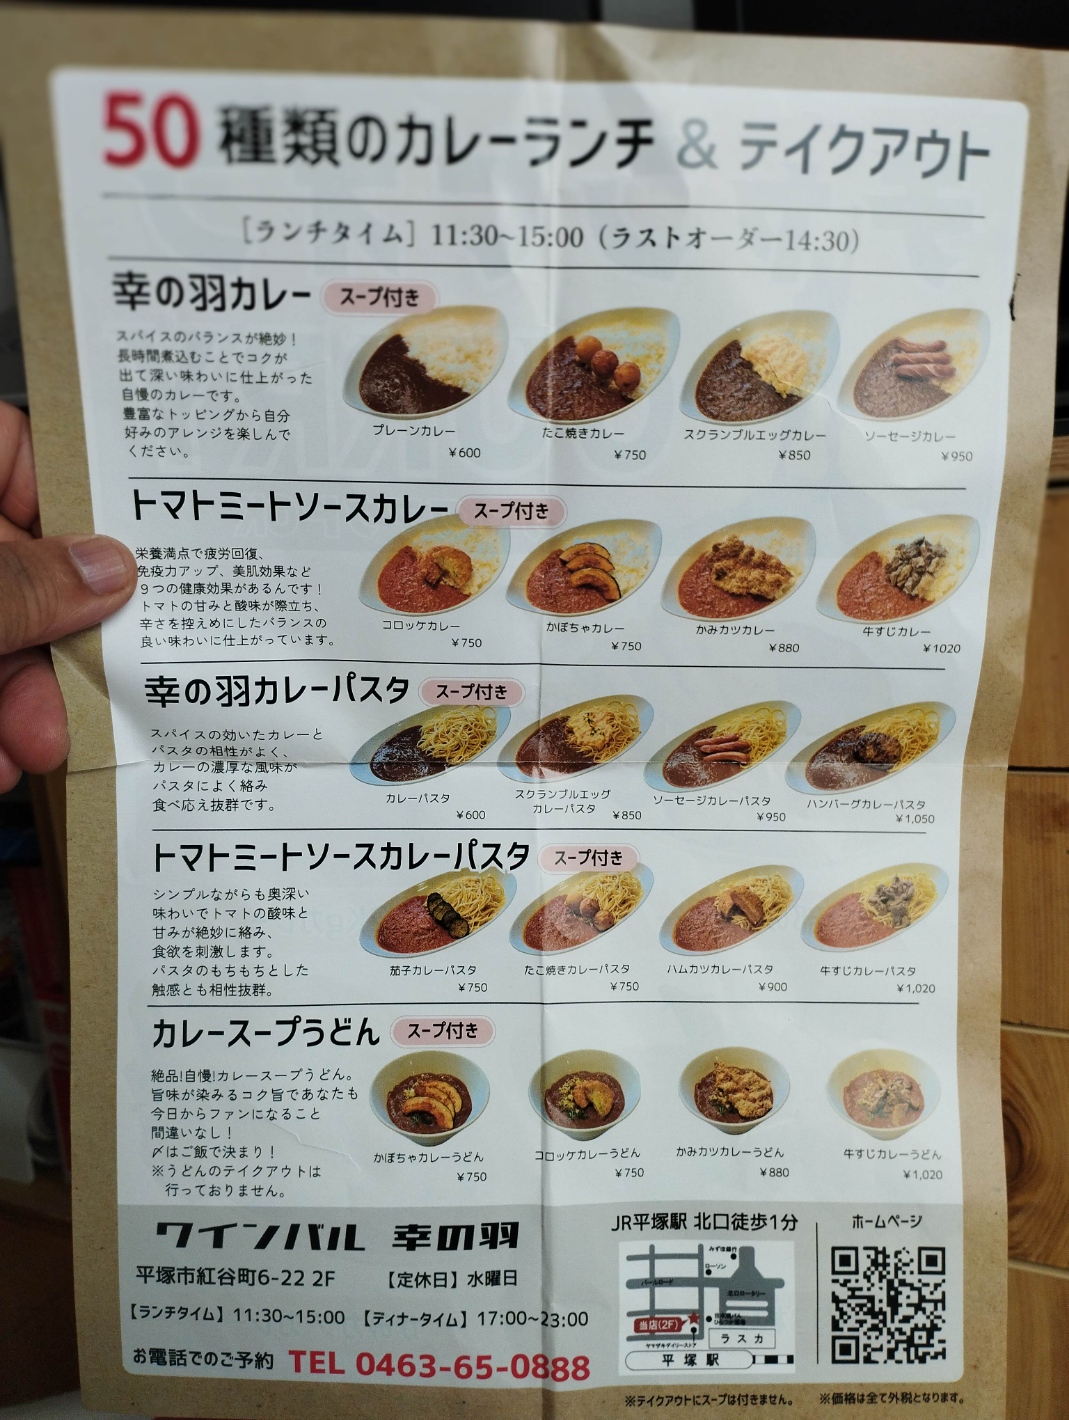 50種類のカレーランチ & テイクアウト
［ランチタイム］11:30~15:00（ラストオーダー14:30）
幸の羽カレー スープ付き
スパイスのバランスが絶妙！
長時間煮込むことでコクが
出て深い味わいに仕上がった
自慢のカレーです。
豊富なトッピングから自分
好みのアレンジを楽しんで
ください。
プレーンカレー
¥600
たこ焼きカレー
¥750
スクランブルエッグカレー
¥850
ソーセージカレー
¥950
トマトミートソースカレー スープ付き
栄養満点で疲労回復、
免疫力アップ、美肌効果など
９つの健康効果があるんです！
トマトの甘みと酸味が際立ち、
辛さを控えめにしたバランスの
良い味わいに仕上がっています。
コロッケカレー
¥750
かぼちゃカレー
¥750
かみカツカレー
¥880
牛すじカレー
¥1020
幸の羽カレーパスタ スープ付き
スパイスの効いたカレーと
パスタの相性がよく、
カレーの濃厚な風味が
パスタによく絡み
食べ応え抜群です。
カレーパスタ
¥600
スクランブルエッグ
カレーパスタ
¥850
ソーセージカレーパスタ
¥950
ハンバーグカレーパスタ
¥1,050
トマトミートソースカレーパスタ スープ付き
シンプルながらも奥深い
味わいでトマトの酸味と
甘みが絶妙に絡み、
食欲を刺激します。
パスタのもちもちとした
触感とも相性抜群。
茄子カレーパスタ
¥750
たこ焼きカレーパスタ
¥750
ハムカツカレーパスタ
¥900
牛すじカレーパスタ
¥1,020
カレースープうどん スープ付き
絶品!自慢!カレースープうどん。
旨味が染みるコク旨であなたも
今日からファンになること
間違いなし！
〆はご飯で決まり！
※うどんのテイクアウトは
行っておりません。
かぼちゃカレーうどん
¥750
コロッケカレーうどん
¥750
かみカツカレーうどん
¥880
牛すじカレーうどん
¥1,020
ワインバル 幸の羽
平塚市紅谷町6-22 2F 【定休日】水曜日
【ランチタイム】11:30~15:00 【ディナータイム】17:00~23:00
お電話でのご予約 TEL 0463-65-0888
JR平塚駅 北口徒歩1分
みずほ銀行
ローソン
パールロード
北口ロータリー
当店(2F)
ラスカ
ヤマザキデイリーストア
平塚駅
ホームページ
※テイクアウトにスープは付きません。 ※価格は全て外税となります。